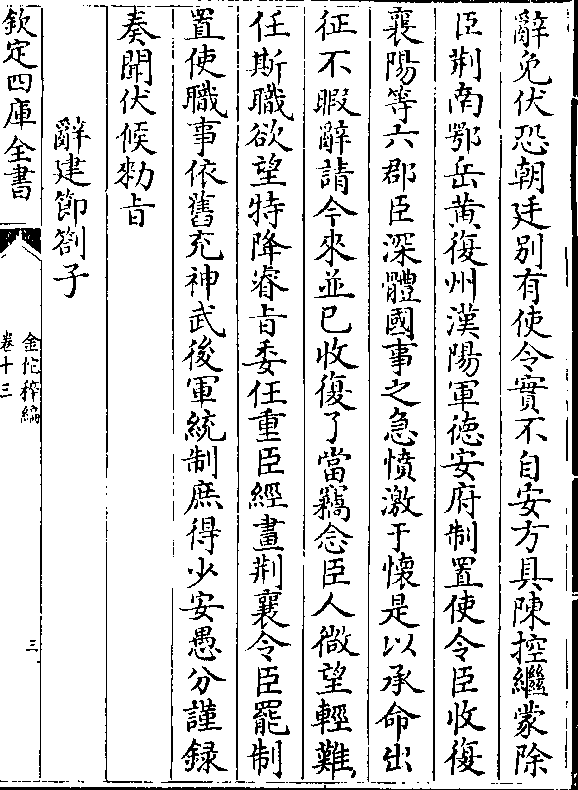 辭免伏恐朝廷別有使令實不自安方具陳控繼蒙除
臣荆南鄂岳黄復州漢陽軍德安府制置使令臣收復
襄陽等六郡臣深體國事之急憤激于懷是以承命出
征不暇辭請今來並已收復了當竊念臣人微望輕難
任斯職欲望特降睿旨委任重臣經畫荆襄令臣罷制
置使職事依舊充神武後軍統制庶得少安愚分謹録
奏聞伏候勑旨
辭建節劄子
欽定四庫全書
金佗稡編
卷十三
三